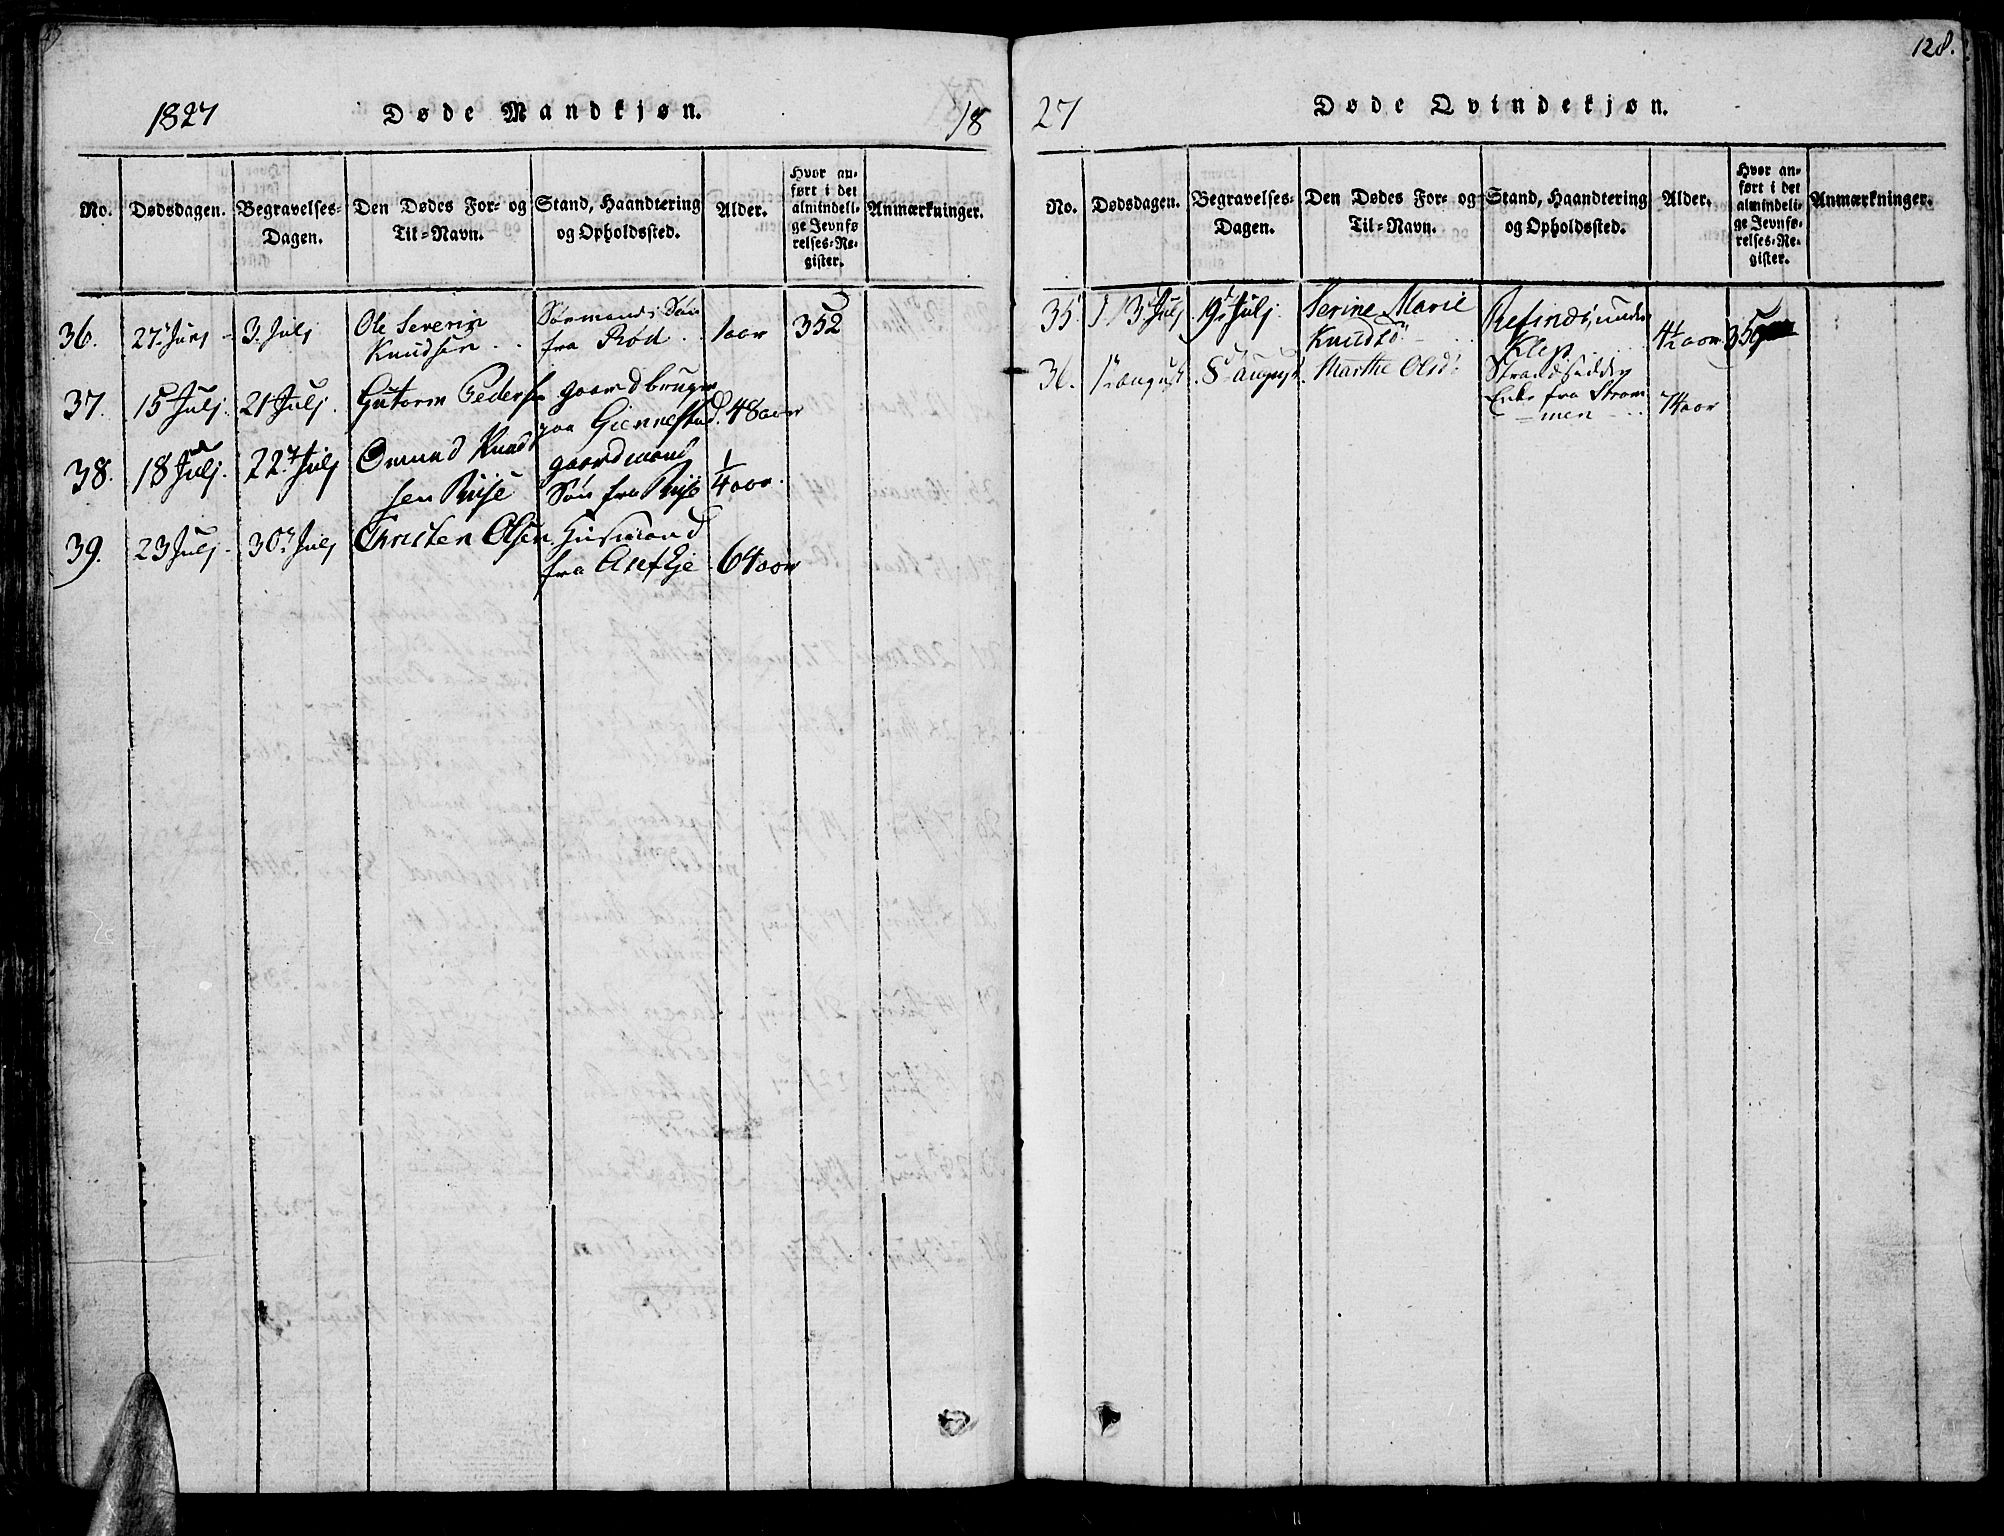 128.
1827 Døde Mandkjøn. 18
No. Dødsdagen. Begravelses-Dagen. Den Dødes For- og Til-Navn. Stand, Haandtering og Opholdssted. Alder. Hvor anført i det almindelige Jevnførelses-Register. Anmærkninger.
36. 27. Junj 3. Julj Ole Severin Knudsen Sørmands Søn fra Rød 1 aar 352
37. 15 Julj. 21 Julj. Gutorm Pedersen gaardbruger paa Giennestad. 48 aar
38. 18 Julj. 22 Julj Omund Knudsen Riise gaardmands Søn fra Riise 1/4 aar.
39. 23 Julj. 30 Julj Christen Olsen Huusmand fra 64 aar
27 Døde Qvindekjøn.
No. Dødsdagen. Begravelses-Dagen. Den Dødes For- og Til-Navn. Stand, Haandtering og Opholdssted. Alder. Hvor anført i det almindelige Jevnførelses-Register. Anmærkninger.
35. 3 Julj 9 Julj. Serine Marie Knudsd: under Klep 4½ aar
36. august. 8 august. Marthe Olsd: Strandsidder Enke fra Strommen 74 aar